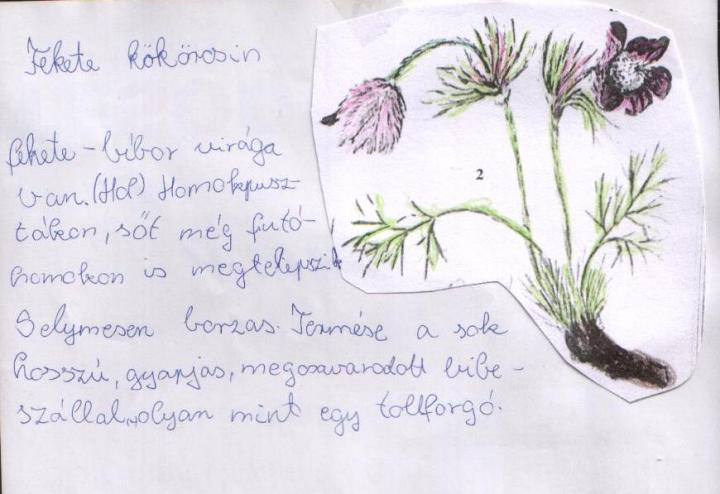 Fekete kökörcsin
fekete-bíbor virága
van. (Hd) Homokpusz-
tákon, sőt még futó-
homokon is megtelepszik
2
Selymesen borzas. Termése a sok
hosszú, gyapjas, megcsavarodott bibe-
szállal, olyan mint egy tollforgó.